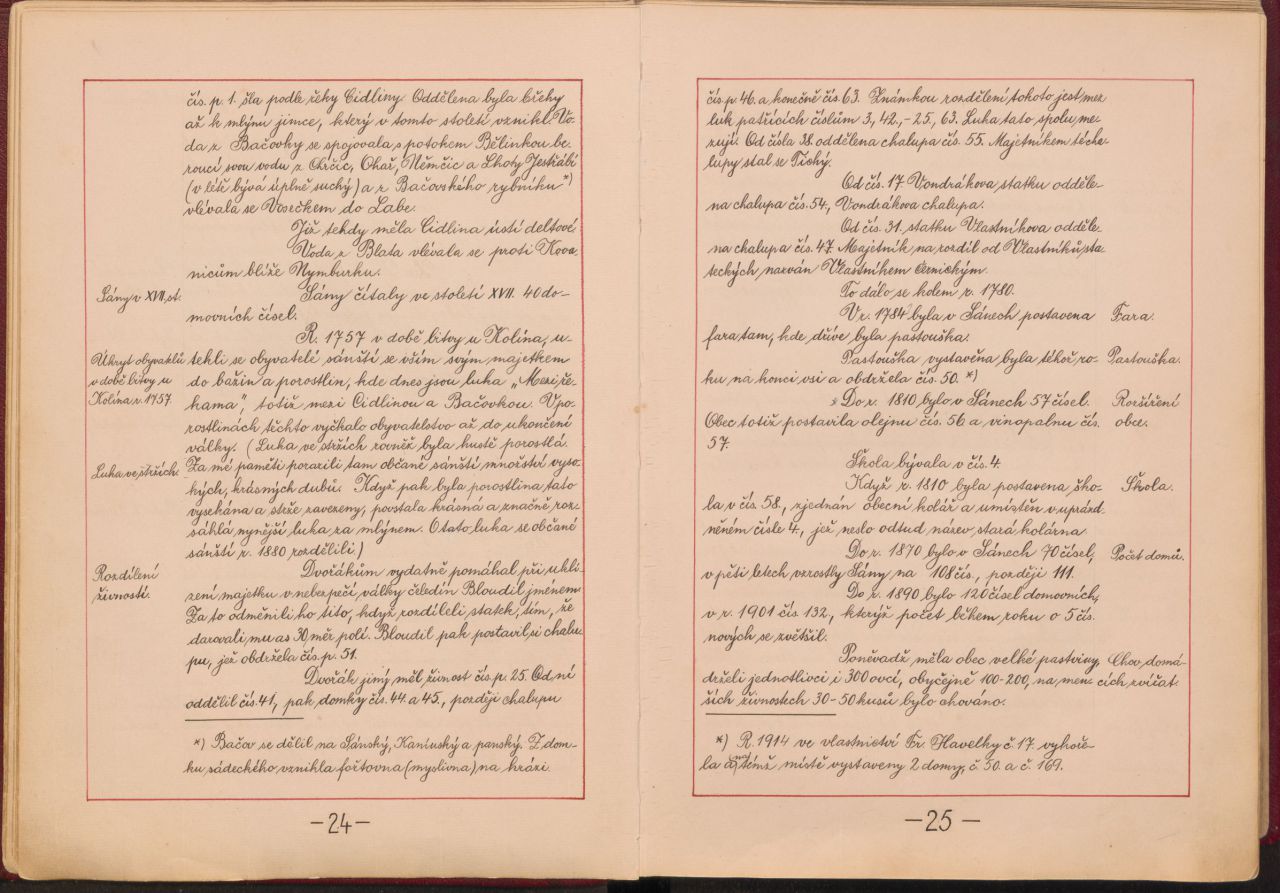 čís. p. 1. šla podle řeky Cidliny. Oddělena byla břehy
až k mlýnu jimce, který v tomto století vznikl. Vo-
da z Bačovky se spojovala s potokem Bělinkou be-
roucí svou vodu z Chrčic, Ohař, Němčic a Lhoty Jestřábí
(v létě bývá úplně suchý) a z Bačovského rybníku *)
vlévala se Vosečkem do Labe.
Již tehdy měla Cidlina ústí deltové
Voda z Blata vlévala se proti Kova-
nicům blíže Nymburku.
Sány v XVII. st.
Sány čítaly ve století XVII. 40 do-
movních čísel.
R. 1757 v době bitvy u Kolína, u-
Úkryt obyvatelů
v době bitvy u
Kolína r. 1757.
tekli se obyvatelé sánští se vším svým majetkem
do bažin a porostlin, kde dnes jsou luka „Mezi ře-
kama", totiž mezi Cidlinou a Bačovkou. V po-
rostlinách těchto vyčkalo obyvatelstvo až do ukončení
války. (Luka ve stržích rovněž byla hustě porostlá.
Luka ve stržích.
Za mé paměti porazili tam občané sánští množství vyso-
kých, krásných dubů. Když pak byla porostlina tato
vysekána a strže zavezeny, povstala krásná a značně roz-
sáhlá nynější luka za mlýnem. O tato luka se občané
sánští r. 1880 rozdělili.)
Rozdílení
živností.
Dvořákům vydatně pomáhal při ukli-
zení majetku v nebezpečí války čeledín Bloudil jménem
Za to odměnili ho tito, když rozdíleli statek, tím, že
darovali mu as 30 měr polí. Bloudil pak postavil si chalu-
pu, jež obdržela čís. p. 51.
Dvořák jiný měl živnost čís. p. 25. Od ní
oddělil čís. 41, pak domky čís. 44. a 45., později chalupu
*) Bačov se dělil na Sánský, Kaninský a panský. Z dom-
ku sádeckého vznikla fořtovna (myslivna) na hrázi.
-24-
čís. p. 46. a konečně čís. 63. Známkou rozdělení tohoto jest mez
luk patřících číslům 3, 42, -25, 63. Luka tato spolu me-
zují. Od čísla 38. oddělena chalupa čís. 55. Majetníkem té cha-
lupy stal se Tichý.
Od čís. 17. Vondrákova statku odděle-
na chalupa čís. 54, Vondrákova chalupa.
Od čís. 31. statku Vlastníkova odděle-
na chalupa čís. 47. Majitník na rozdíl od Vlastníků sta-
teckých nazván Vlastníkem černickým.
To dálo se kolem r. 1780.
V r. 1784 byla v Sánech postavena
Fara.
fara tam, kde dříve byla pastouška.
Pastouška vystavěna byla téhož ro-
Pastouška.
ku na konci vsi a obdržela čís. 50. *)
Do r. 1810 bylo v Sánech 57 čísel.
Rozšíření
obce.
Obec totiž postavila olejnu čís. 56 a vinopalnu čís.
57.
Škola bývala v čís. 4.
Když r. 1810 byla postavena ško-
Škola.
la v čís. 58., zjednán obecní kolář a umístěn v uprázd-
něném čísle 4., jež neslo odtud název stará kolárna
Do r. 1870 bylo v Sánech 70 čísel,
Počet domů.
v pěti letech vzrostly Sány na 108 čís., později 111.
Do r. 1890 bylo 126 čísel domovních,
v r. 1901 čís. 132., kterýž počet během roku o 5 čís.
nových se zvětšil.
Poněvadž měla obec velké pastviny,
Chov domá-
cích zvířat.
drželi jednotlivci i 300 ovcí, obyčejně 100-200, na men-
ších živnostech 30-50 kusů bylo chováno.
*) R. 1914 ve vlastnictví Fr. Havelky č. 17. vyhoře-
la a na témž místě vystaveny 2 domy, č. 50. a č. 169.
-25-